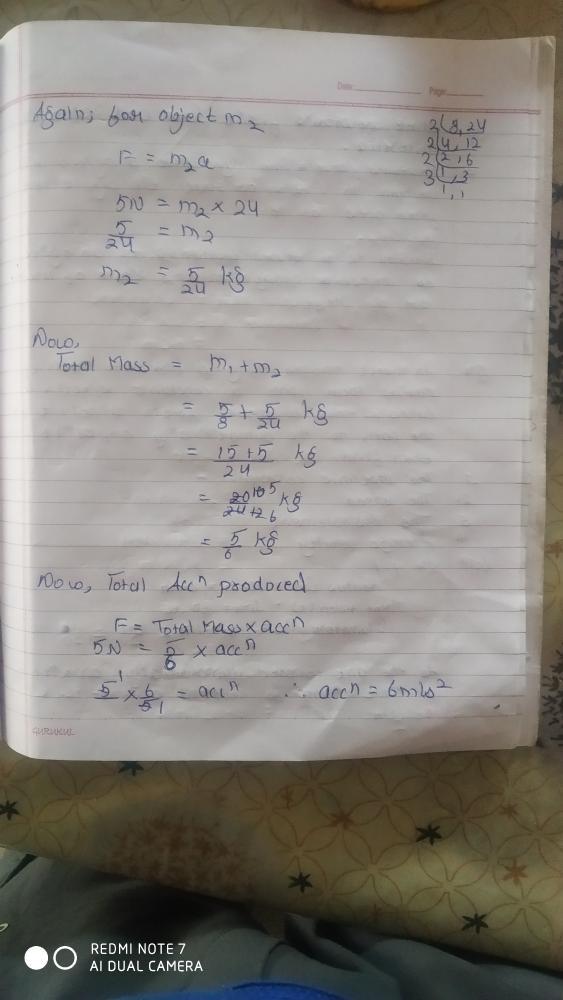 Date: Page:
Again; for object m₂
2 | 8, 24
2 | 4, 12
2 | 2, 6
3 | 1, 3
1, 1
F = m₂a
5N = m₂ × 24
5/24 = m₂
m₂ = 5/24 kg
Now,
Total Mass = m₁ + m₂
= 5/8 + 5/24 kg
= 15+5/24 kg
= 20 10 5/24 12 6 kg
= 5/6 kg
Now, Total Accⁿ produced
F = Total Mass × accⁿ
5N = 5/6 × accⁿ
5 1 × 6/5 1 = accⁿ ∴ accⁿ = 6m/s²
GURUKUL
REDMI NOTE 7
AI DUAL CAMERA